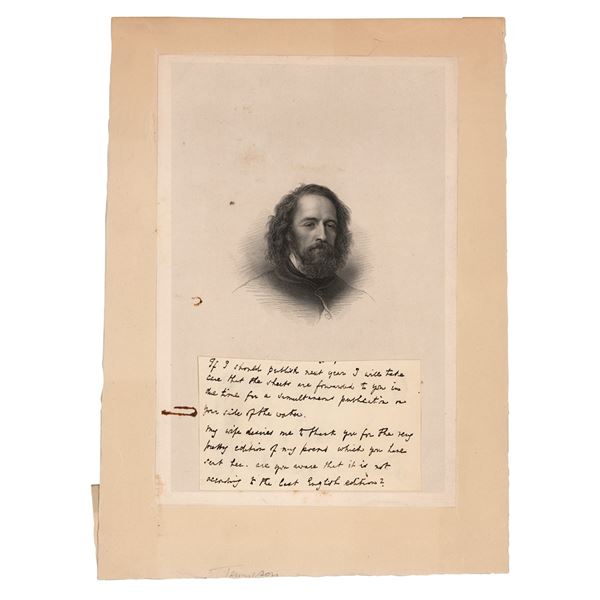 If I should publish next year I will take
care that the sheets are forwarded to you in
due time for a simultaneous publication on
your side of the water.
My wife desires me to thank you for the very
pretty edition of my poems which you have
sent her. are you aware that it is not
according to the last English edition?
Tennyson